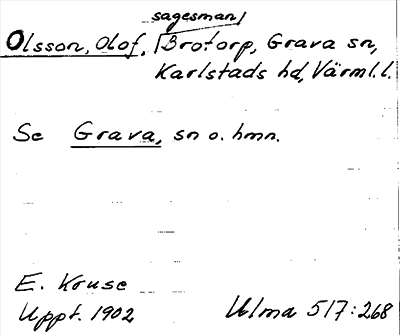 sagesman
Olsson, Olof, Brotorp, Grava sn,
Karlstads hd, Värml. l.
Se Grava, sn o. hmn.
E. Kruse
Uppt. 1902
Ulma 517:268